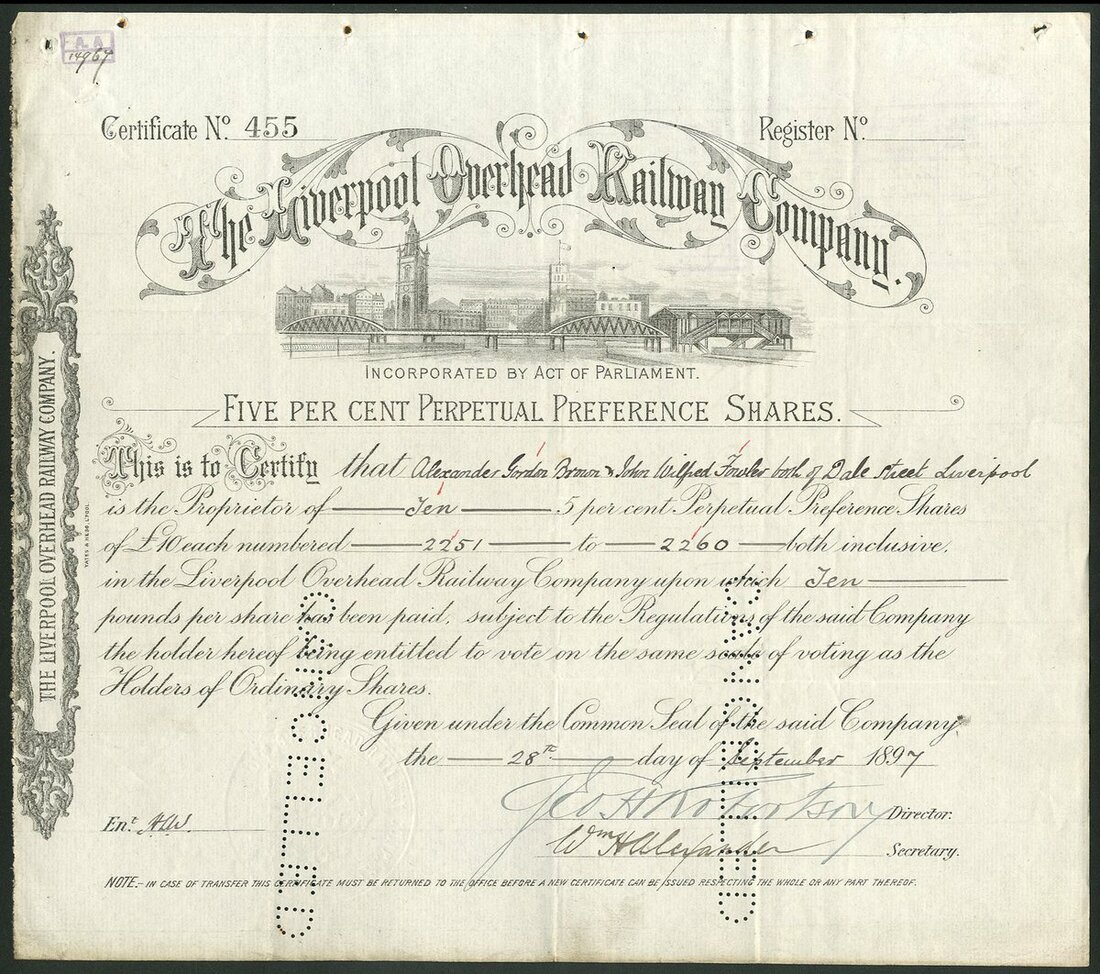 A.A
14967
Certificate Nº 455
Register Nº
The Liverpool Overhead Railway Company.
INCORPORATED BY ACT OF PARLIAMENT.
FIVE PER CENT PERPETUAL PREFERENCE SHARES.
This is to Certify that Alexander Gordon Brown & John Wilfred Fowler both of Dale Street Liverpool
is the Proprietor of Ten 5 per cent Perpetual Preference Shares
of £10 each numbered 2251 to 2260 both inclusive.
in the Liverpool Overhead Railway Company upon which Ten
pounds per share has been paid, subject to the Regulations of the said Company
the holder hereof being entitled to vote on the same scale of voting as the
Holders of Ordinary Shares.
Given under the Common Seal of the said Company
the 28th day of September 1897
Geo H Robertson Director:
Wm H Alexander Secretary.
Ent. H.W.
NOTE:- IN CASE OF TRANSFER THIS CERTIFICATE MUST BE RETURNED TO THE OFFICE BEFORE A NEW CERTIFICATE CAN BE ISSUED RESPECTING THE WHOLE OR ANY PART THEREOF.
THE LIVERPOOL OVERHEAD RAILWAY COMPANY.
YATES & HESS, L'POOL
CANCELLED
CANCELLED